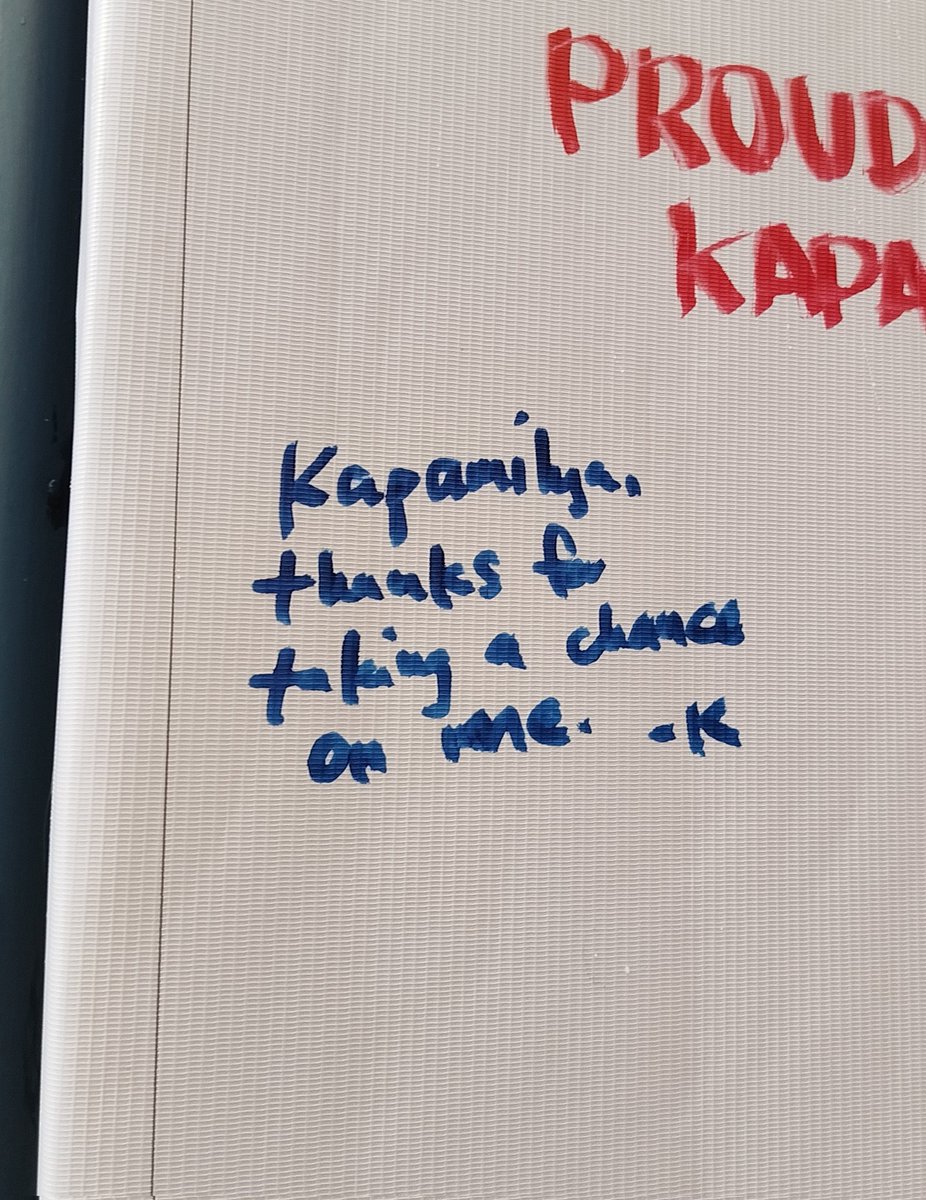 PROUD
KAPA
Kapamilya.
thanks for
taking a chance
on me. -K